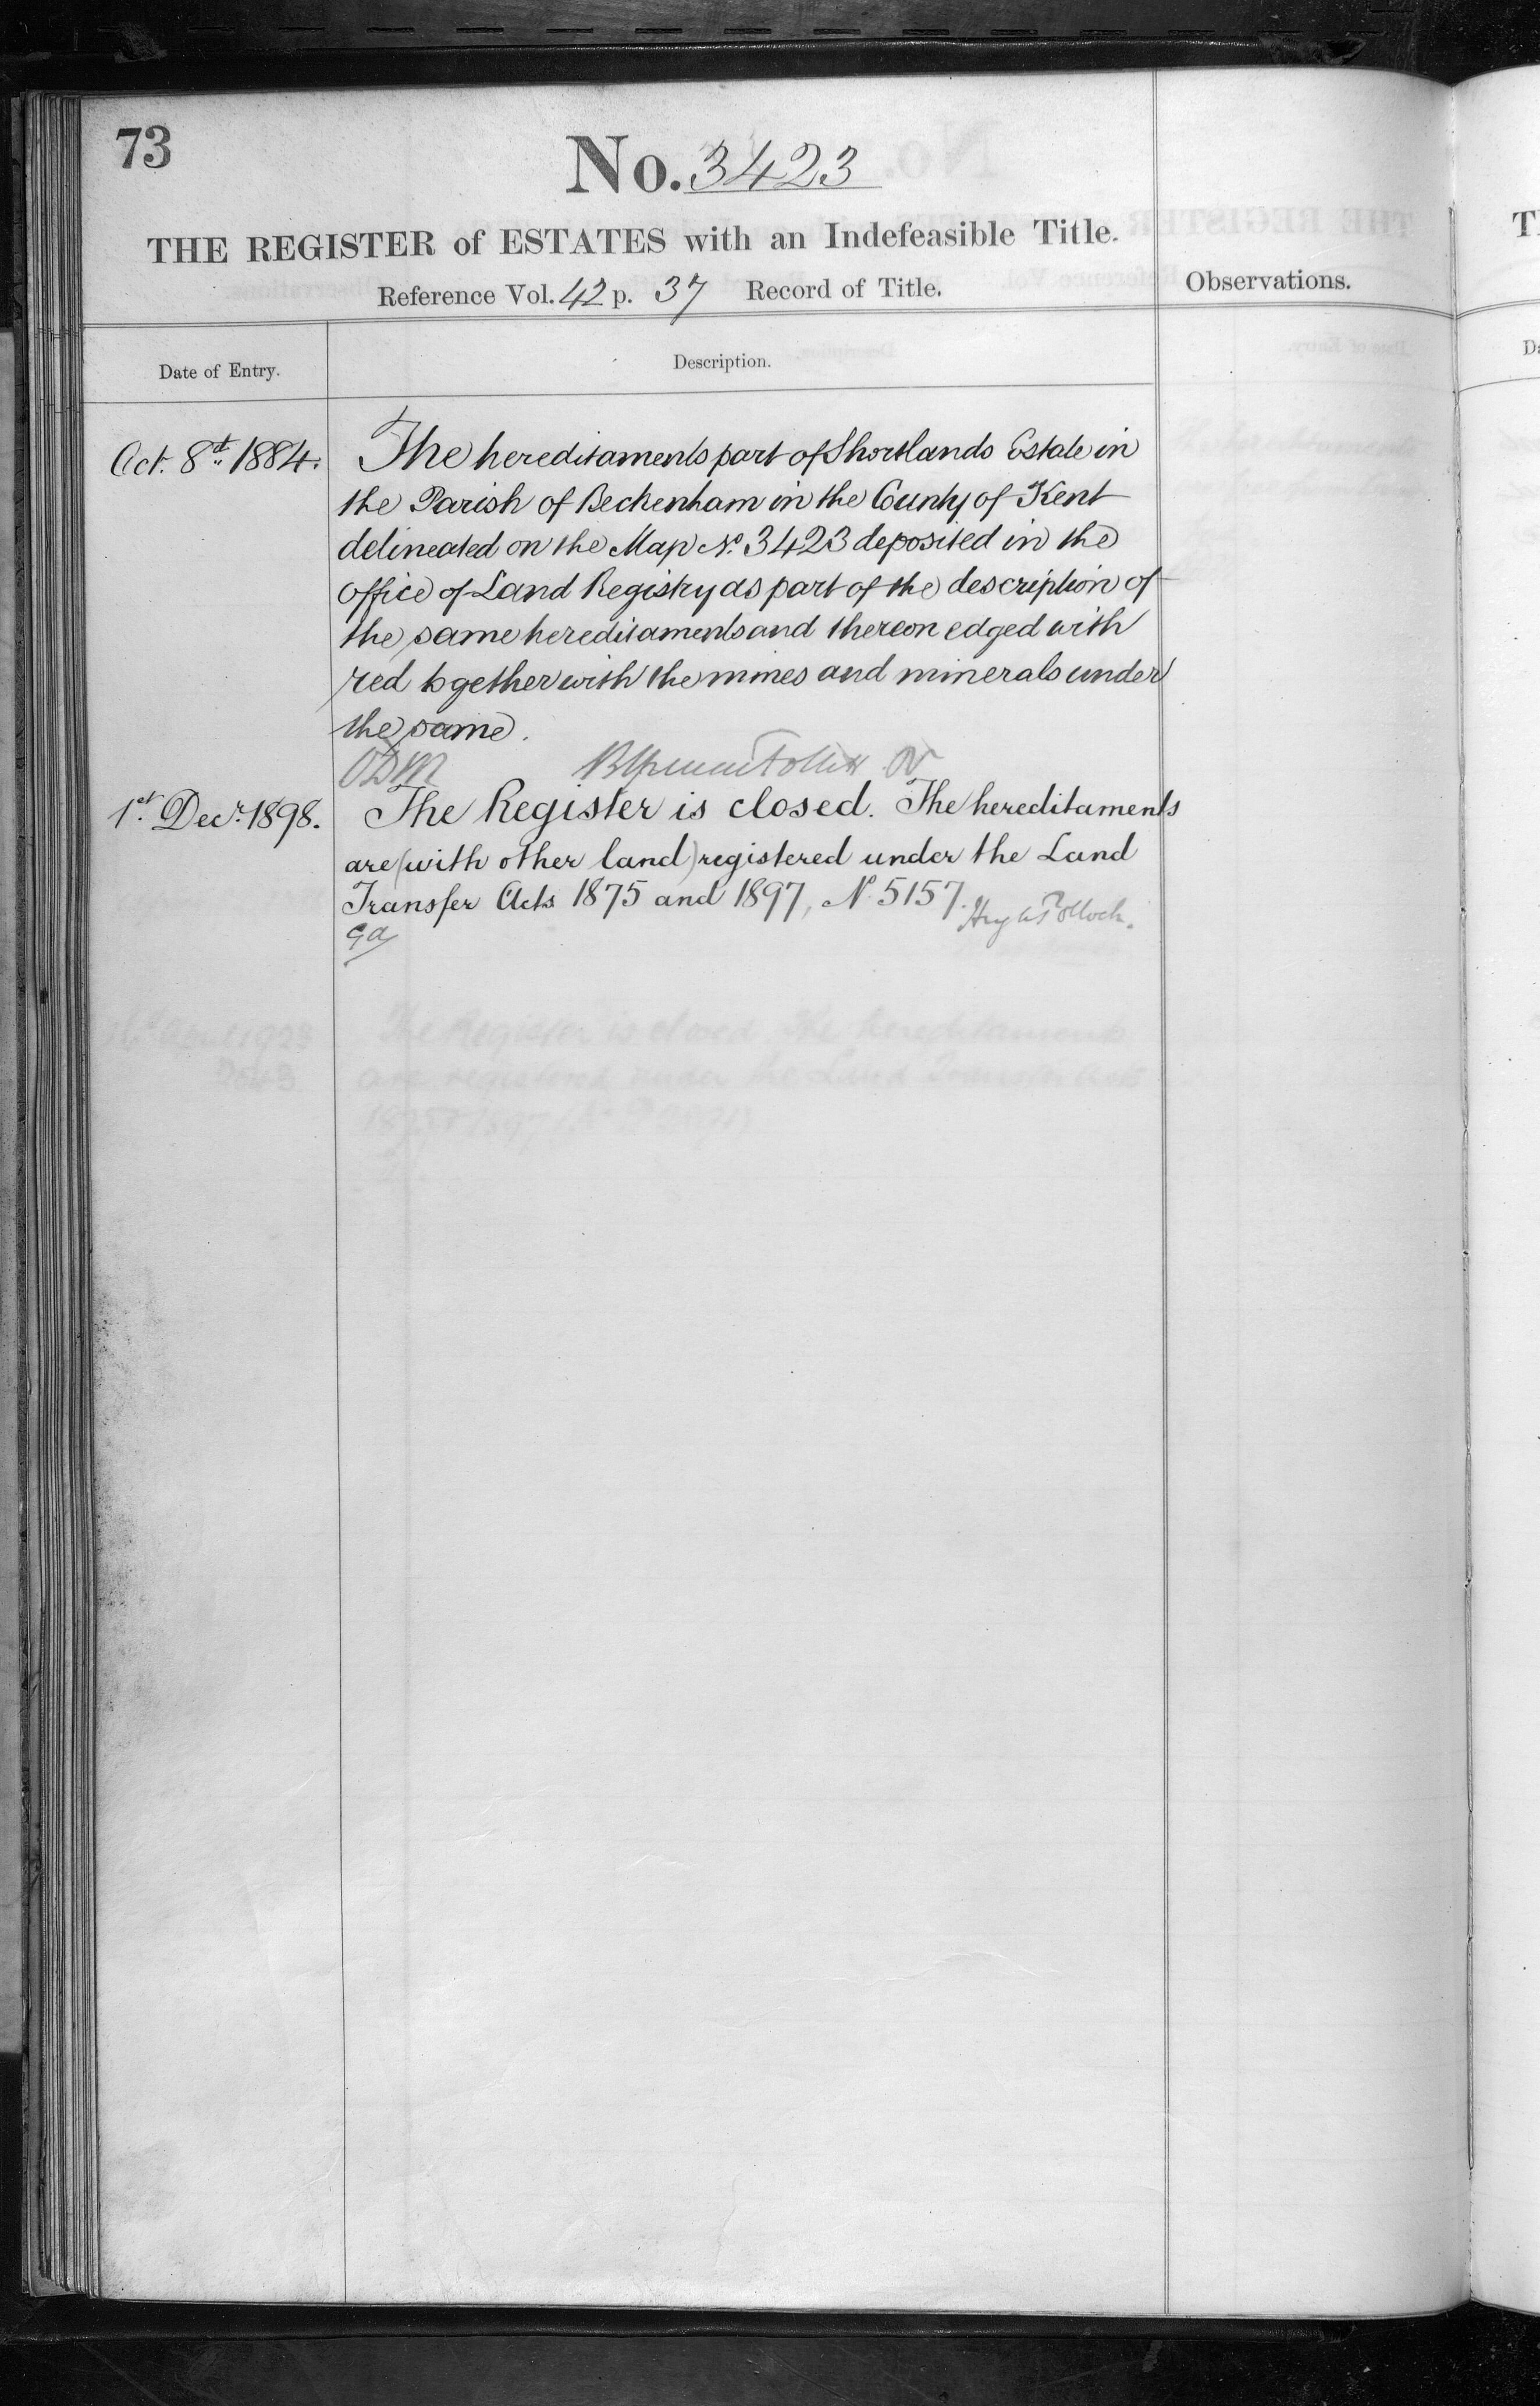 73
No. 3423
THE REGISTER of ESTATES with an Indefeasible Title.
Reference Vol. 42 p. 37 Record of Title.
Observations.
Date of Entry.
Description.
Oct. 8th 1884.
The hereditaments part of Shortlands Estate in
the Parish of Beckenham in the County of Kent
delineated on the Map No. 3423 deposited in the
Office of Land Registry as part of the description of
the same hereditaments and thereon edged with
red together with the mines and minerals under
the same.
1st Decr. 1898.
The Register is closed. The hereditaments
are (with other land) registered under the Land
Transfer Acts 1875 and 1897, No. 5157.
Pollock.